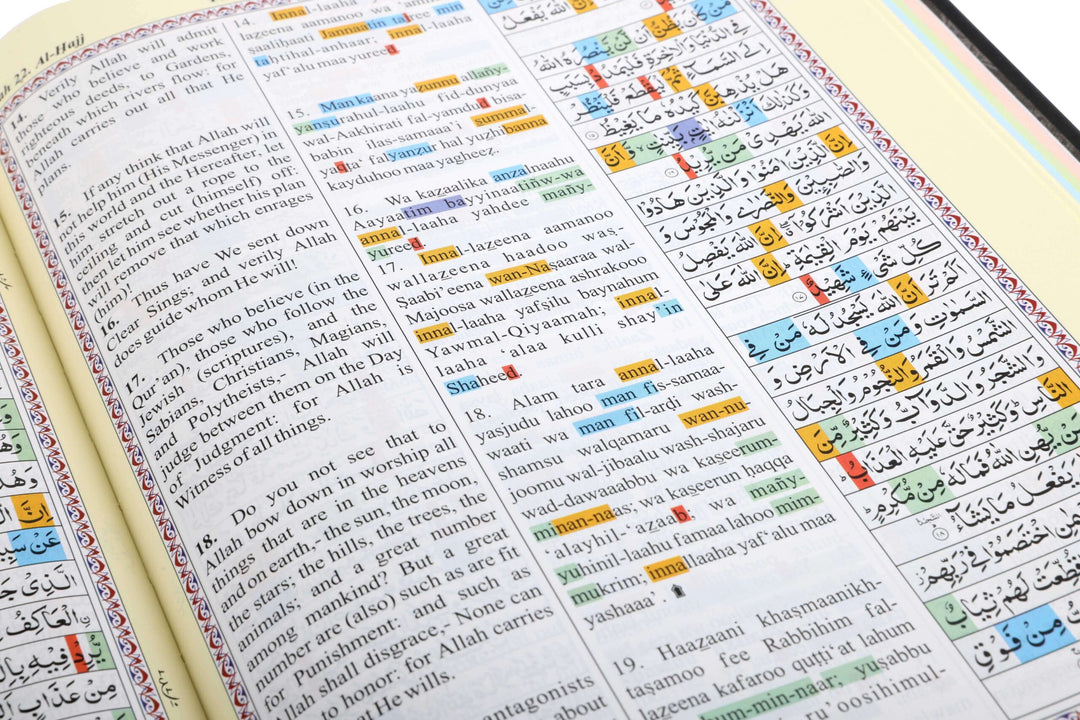 22. Al-Hajj
14. Verily Allah will admit
those who believe and work
righteous deeds, to Gardens
beneath which rivers flow: for
Allah carries out all that He
plans.
15. If any think that Allah will
not help him (His Messenger) in
this world and the Hereafter, let
him stretch out a rope to the
ceiling and cut (himself) off:
then let him see whether his plan
will remove that which enrages
(him)!
16. Thus have We sent down
Clear Signs; and verily Allah
does guide whom He will!
17. Those who believe (in the
Qur'an), those who follow the
Jewish (scriptures), and the
Sabians, Christians, Magians,
and Polytheists,- Allah will
judge between them on the Day
of Judgment: for Allah is
Witness of all things.
18. Do you not see that to
Allah bow down in worship all
things that are in the heavens
and on earth,- the sun, the moon,
the stars; the hills, the trees, the
animals; and a great number
among mankind? But a great
number are (also) such as are fit
for Punishment: and such as
Allah shall disgrace,- None can
to honor: for Allah carries
at He wills.
antagonists
about
14. Inna
lazeena aamanoo wa
ṣaaliḥaati Jannaatin tajree min
yaf'alu maa yureed.
15. Man kaana yaẓunnu allañy-
yanṣurahul-laahu fid-dunyaa
wal-Aakhirati fal-yamdud bisa-
babin ilas-samaaa'i summal-
yaqta' falyanẓur hal yuzhibanna
kayduhoo maa yagheeẓ.
16. Wa kazaalika anzalnaahu
Aayaatim bayyinaatiñw-wa
annal-laaha yahdee mañy-
yureed.
17. Innal-lazeena aamanoo
wallazeena haadoo waṣ-
Ṣaabi'eena wan-Naṣaaraa wal-
Majoosa wallazeena ashrakooo
innal-laaha yafṣilu baynahum
Yawmal-Qiyaamah; innal-
laaha 'alaa kulli shay'in
Shaheed.
18. Alam tara annal-laaha
yasjudu lahoo man fis-samaa-
waati wa man fil-arḍi wash-
shamsu walqamaru wan-nu-
joomu wal-jibaalu wash-shajaru
wad-dawaaabbu wa kaseerum-
minan-naas; wa kaseerun ḥaqqa
'alayhil-'azaab; wa mañy-
yuhinil-laahu famaa lahoo mim-
mukrim; innallaaha yaf'alu maa
yashaaa'
19. Haazaani khaṣmaanikh-
taṣamoo fee Rabbihim fal-
lazeena kafaroo quṭṭi'at lahum
hum-min-naar; yuṣabbu
ru'oosihimul-
فِي الدُّنْيَا وَالْاٰخِرَةِ فَلْيَمْدُدْ بِسَبَبٍ
اِلَى السَّمَآءِ ثُمَّ لْيَقْطَعْ فَلْيَنْظُرْ
هَلْ يُذْهِبَنَّ كَيْدُهٗ مَا يَغِيْظُ
وَكَذٰلِكَ اَنْزَلْنٰهُ اٰيٰتٍۢ بَيِّنٰتٍ ۙ وَّاَنَّ
اللّٰهَ يَهْدِىْ مَنْ يُّرِيْدُ
اِنَّ الَّذِيْنَ اٰمَنُوْا وَالَّذِيْنَ هَادُوْا
وَالصّٰبِـِٕيْنَ وَالنَّصٰرٰى وَالْمَجُوْسَ وَ
الَّذِيْنَ اَشْرَكُوْۤا ۖ اِنَّ اللّٰهَ يَفْصِلُ
بَيْنَهُمْ يَوْمَ الْقِيٰمَةِ ؕ اِنَّ اللّٰهَ عَلٰى
كُلِّ شَىْءٍ شَهِيْدٌ
اَلَمْ تَرَ اَنَّ اللّٰهَ يَسْجُدُ لَهٗ مَنْ فِى
السَّمٰوٰتِ وَمَنْ فِى الْاَرْضِ وَ
الشَّمْسُ وَالْقَمَرُ وَالنُّجُوْمُ وَالْجِبَالُ
وَالشَّجَرُ وَالدَّوَآبُّ وَكَثِيْرٌ مِّنَ
النَّاسِ ؕ وَكَثِيْرٌ حَقَّ عَلَيْهِ الْعَذَابُ
مَنْ يُّهِنِ اللّٰهُ فَمَا لَهٗ مِنْ مُّكْرِمٍ
يَفْعَلُ مَا يَشَآءُ
اخْتَصَمُوْا فِىْ رَبِّهِمْ
لَهُمْ ثِيَابٌ
مِنْ فَوْقِ